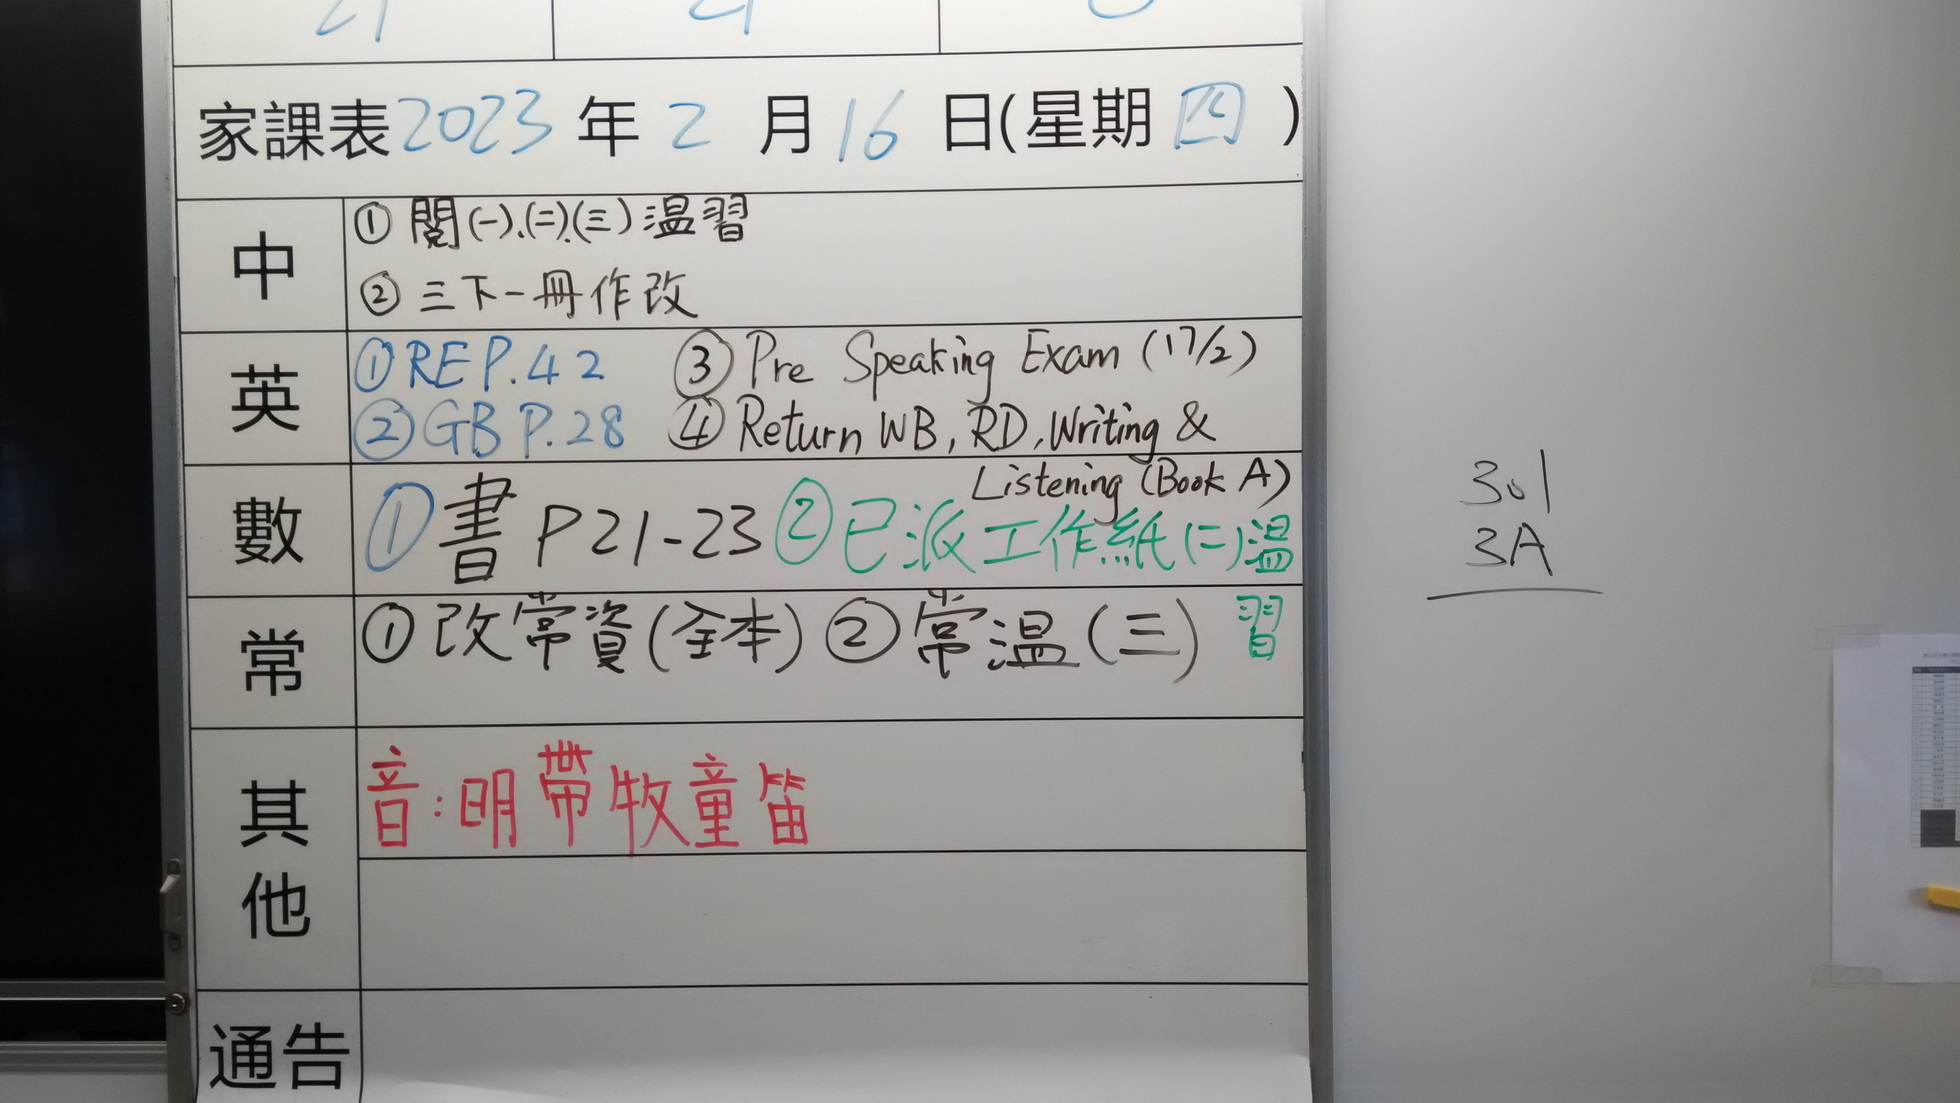 家課表2023年2月16日(星期四)
中
① 閱(一).(二).(三)温習
② 三下一冊作改
英
① RE P.42 ③ Pre Speaking Exam (17/2)
② GB P.28 ④ Return WB, RD, Writing &
Listening (Book A)
數
① 書 P21-23 ② 已派工作紙(二)温
習
常
① 改常資(全本) ② 常温(三)
其他
音:明帶牧童笛
通告
301
3A